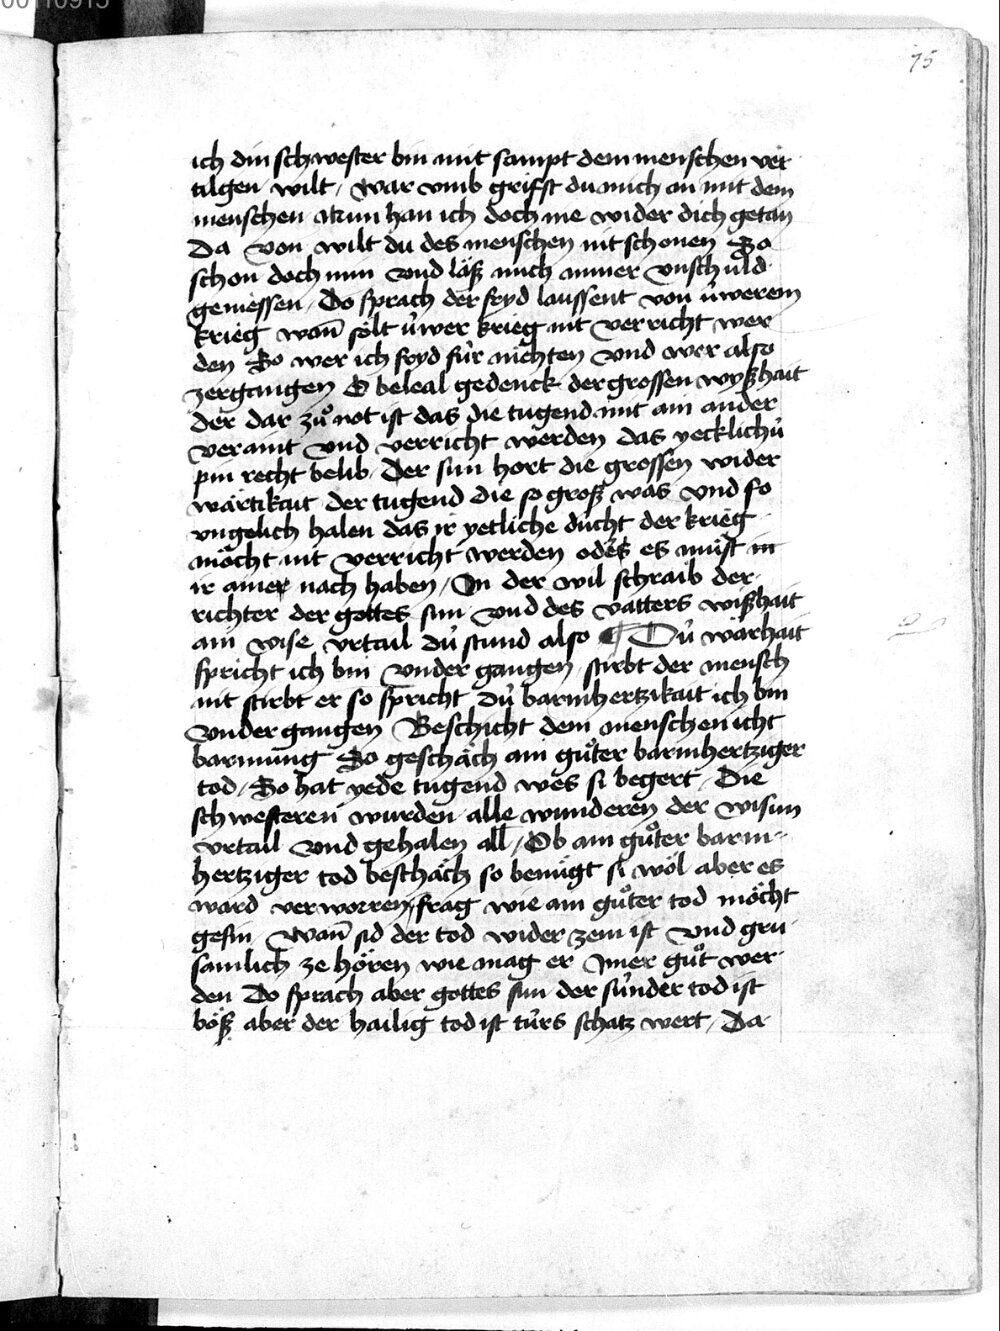 00110915
75
ich din schwester bin mit sampt dem menschen ver
tilgen wilt / war vmb grifst du mich an mit dem
menschen Nun han ich doch nie wider dich getan
Da von wilt du des menschen nit schonen So
schon doch min vnd läß mich miner vnschuld
geniessen / Do sprach der fryd laussent von ůwerem
krieg wan̄ sölt ůwer krieg nit verricht wer
den So wer ich fryd für nichten vnd wer also
zergangen O beleal gedenck der grossen wyßhait
der dar zů not ist das die tugend mit ain ander
veraint vnd verricht werden das yecklichü
pin recht belib / Der sun hort die grossen wider
wärtikait der tugend die so groß was vnd so
vngelich halen das ir yetliche dücht der krieg
möcht nit verricht werden odes es müst in
ir ainer nach haben / In der wil schraib der
richter der gottes sun vnd des vatters wißhait
ain wise vrtail dü stund also ¶ Dü wärhait
spricht ich bin vnder gangen stirbt der mensch
nit stirbt er so spricht dü barmhertzikait ich bin
vnder gangen Beschicht dem menschen icht
barmung So geschäch ain gůter barmhertziger
tod / So hat yede tugend wes si begert / Die
schwesteren wurden alle wunderen der wisun
vrtail vnd gehalen all / Ob ain gůter barm-
hertziger tod beschäch so benügt si wol aber es
ward verworren frag wie ain gůter tod möcht
gesin / wan̄ sid der tod wider zem ist vnd gru
samlich ze hören wie mag er Imer gůt wer
den Do sprach aber gottes sun der sünder tod ist
böß aber der hailig tod ist türs schatz wert / Da